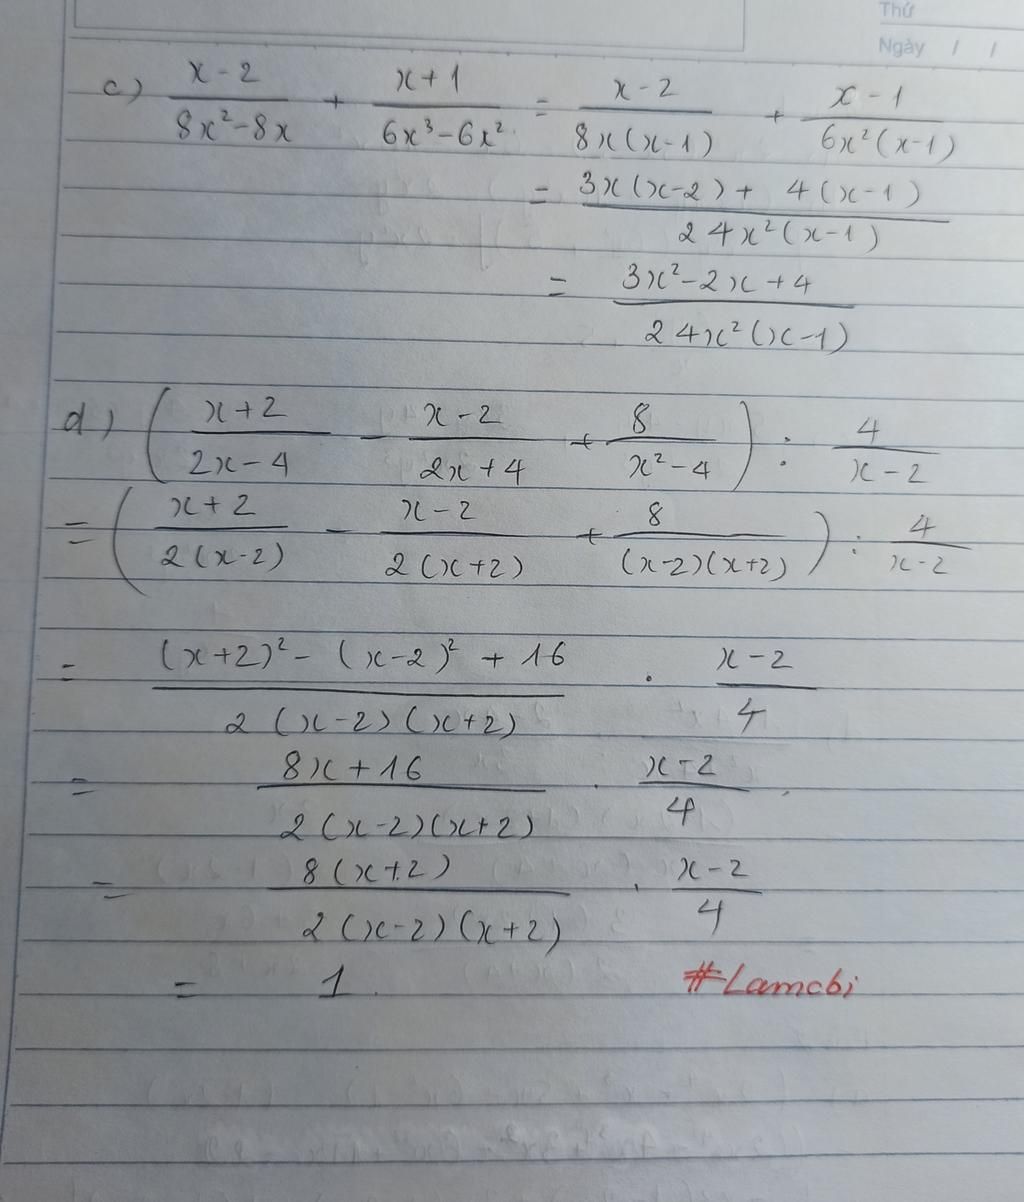 Thứ
Ngày / /
c) \frac{x-2}{8x²-8x} + \frac{x+1}{6x³-6x²} = \frac{x-2}{8x(x-1)} + \frac{x-1}{6x²(x-1)}
= \frac{3x(x-2) + 4(x-1)}{24x²(x-1)}
= \frac{3x²-2x+4}{24x²(x-1)}
d) (\frac{x+2}{2x-4} - \frac{x-2}{2x+4} + \frac{8}{x²-4}) : \frac{4}{x-2}
= (\frac{x+2}{2(x-2)} - \frac{x-2}{2(x+2)} + \frac{8}{(x-2)(x+2)}) : \frac{4}{x-2}
= \frac{(x+2)² - (x-2)² + 16}{2(x-2)(x+2)} . \frac{x-2}{4}
= \frac{8x+16}{2(x-2)(x+2)} . \frac{x-2}{4}
= \frac{8(x+2)}{2(x-2)(x+2)} . \frac{x-2}{4}
= 1. #Lamcbi